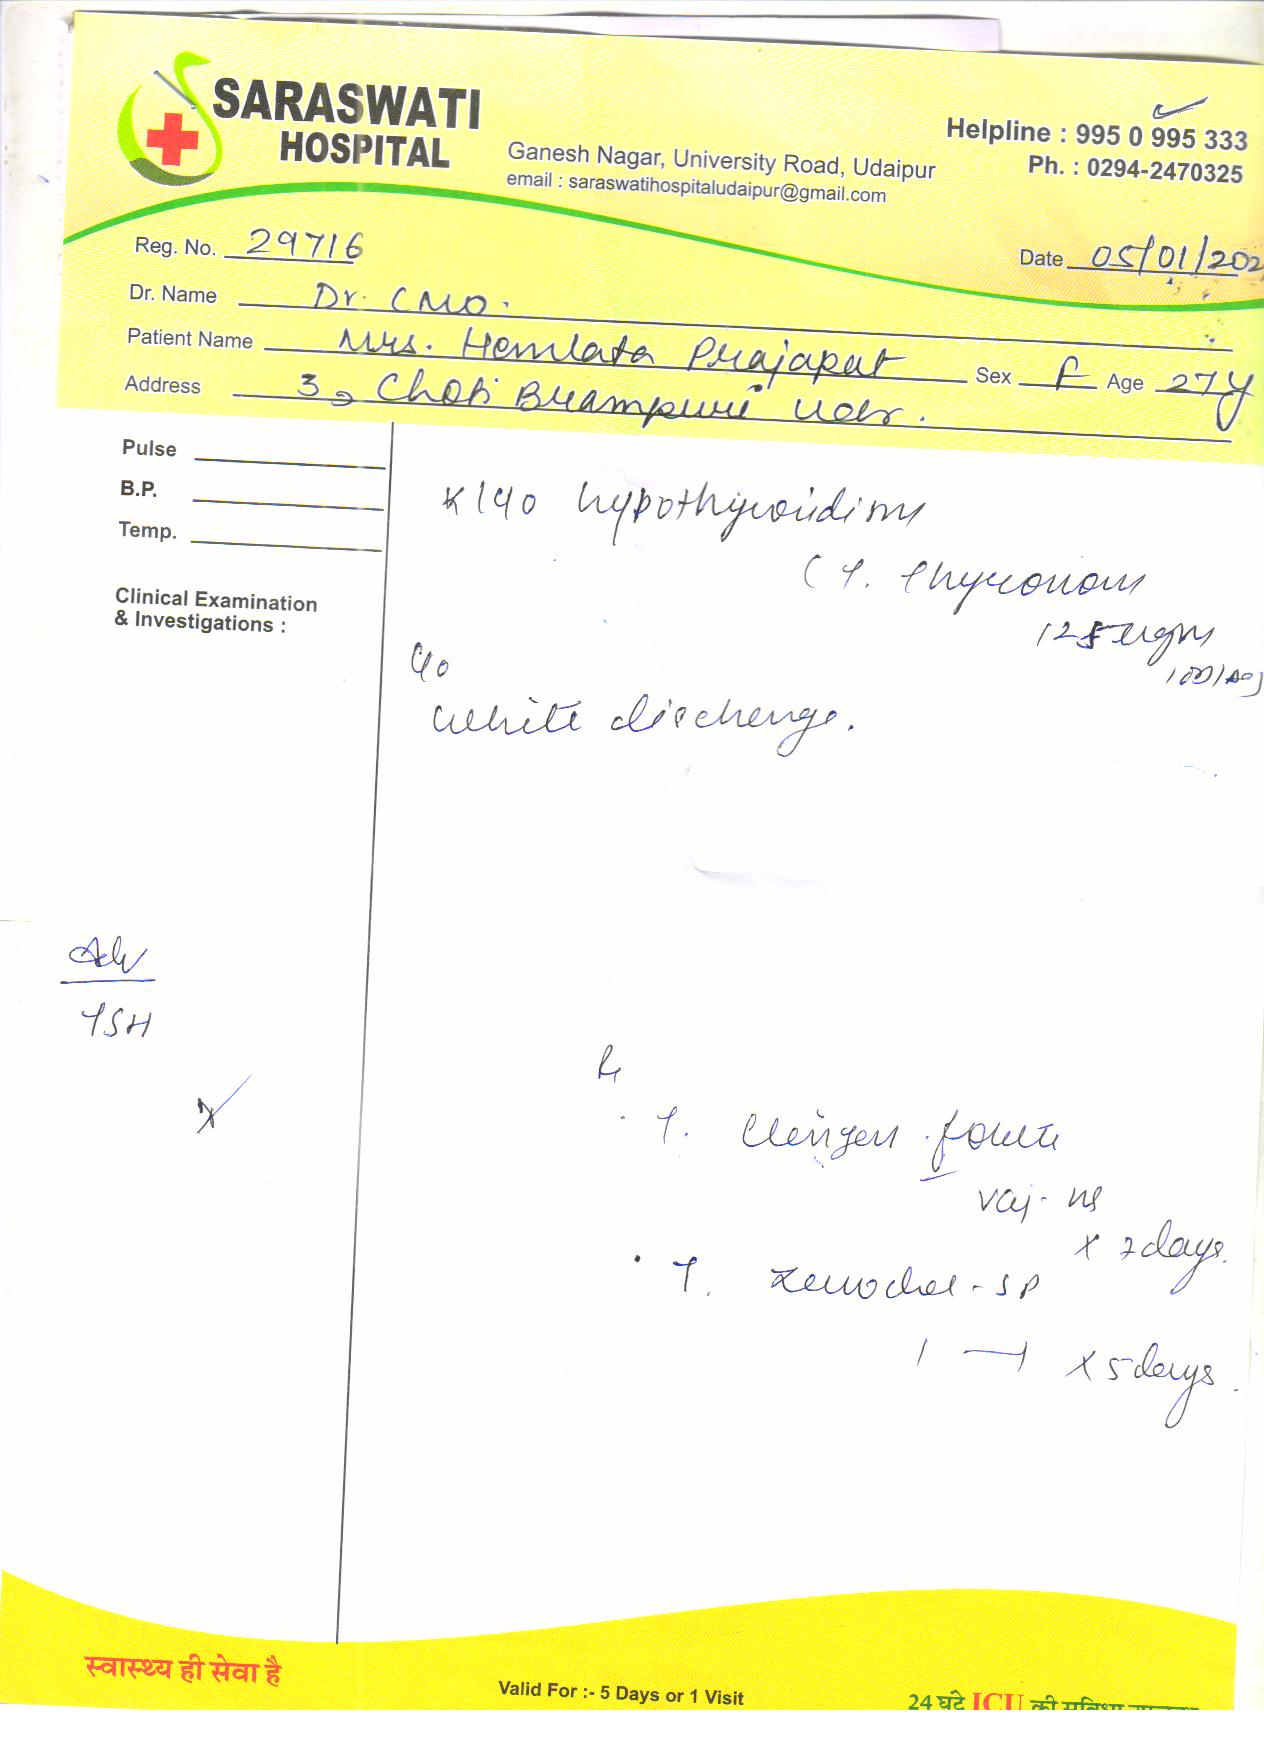 SARASWATI
HOSPITAL
Ganesh Nagar, University Road, Udaipur
email : saraswatihospitaludaipur@gmail.com
Helpline : 995 0 995 333
Ph. : 0294-2470325
Reg. No. 29716
Date 05/01/202
Dr. Name Dr. CMO.
Patient Name Mrs. Hemlata Prajapat Sex F Age 27y
Address 3, Choti Brampuri Udr.
Pulse
B.P.
Temp.
Clinical Examination
& Investigations :
K/C/O hypothyroidism
(T. Thyronorm
125 ugm
C/O
White discharge.
Adv
TSH
Rx
T. Clingen forte
vaj- HS
x 7 days.
T. Zerodol-SP
1 — 1 x 5 days.
स्वास्थ्य ही सेवा है
Valid For :- 5 Days or 1 Visit
24 घंटे ICU की सुविधा